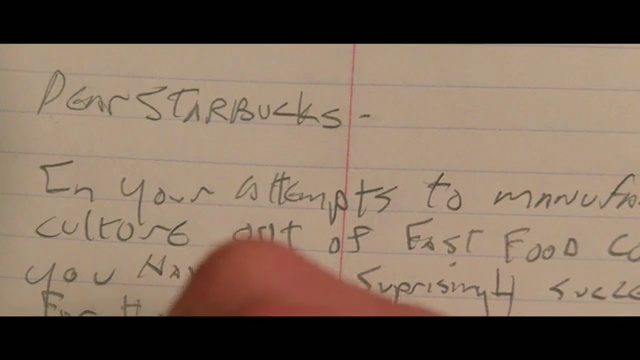 Dear STARBUCKS -
In your attempts to
culture out of FAST FOOD
you suprisingly